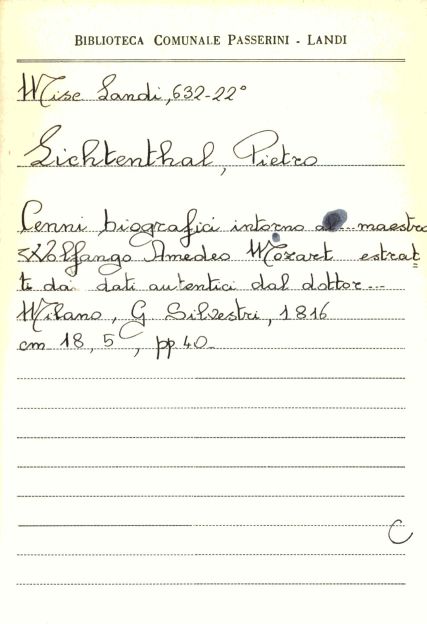 BIBLIOTECA COMUNALE PASSERINI - LANDI
Misc Landi, 632-22°
Lichtenthal, Pietro
Cenni biografici intorno al maestro
Wolfango Amedeo Mozart estrat
ti da dati autentici dal dottor...
Milano, G Silvestri, 1816
cm 18,5, pp 40
C